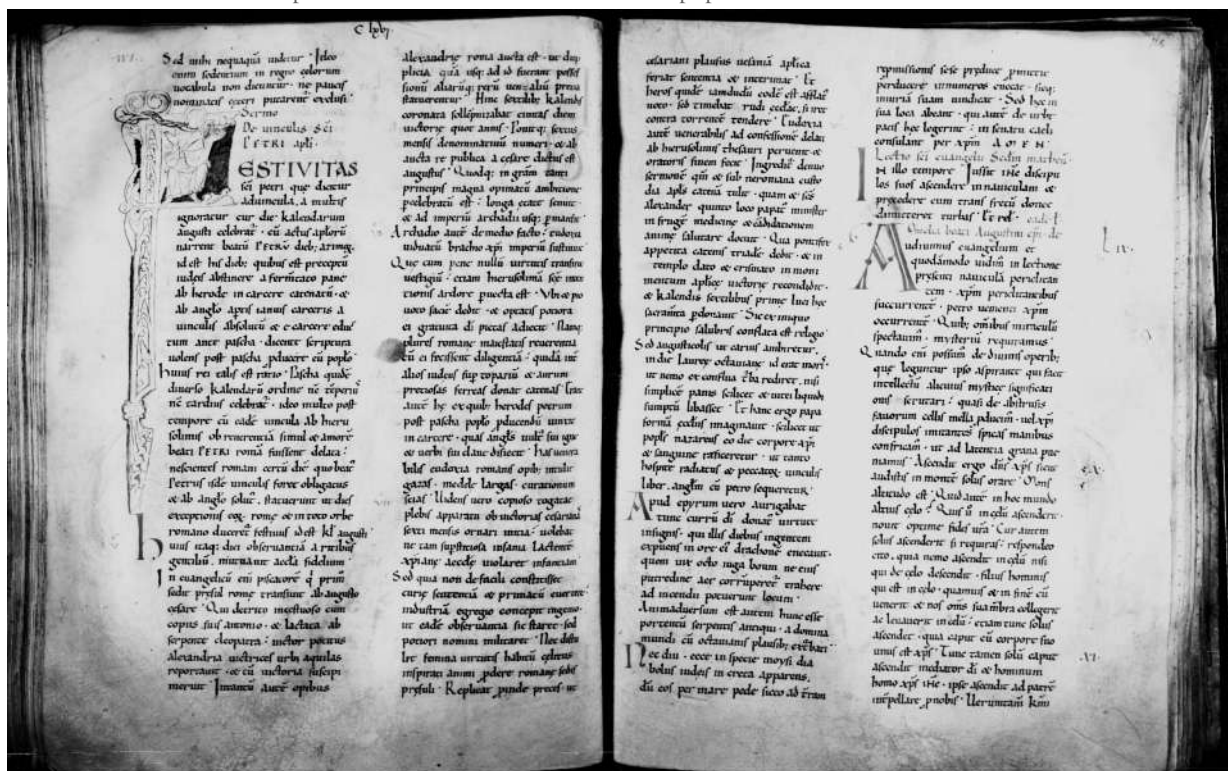 C lxvi.
Sed mihi nequaquā uidetur. Ideo
enim sedentium in regno celorum
uocabula non dicuntur. ne paucis
nominatis ceteri putarent exclusi.
Sermo
De uinculis sci
PETRI apli.
FESTIVITAS
sci petri que dicitur
aduincula, a multis
ignoratur cur die kalendarum
augusti celebrat. cū actus aplorū
narrent beatū PETRV dieb; azimoꝝ.
id est his dieb; quibus est preceptū
iudeis abstinere a fermtaco pane
ab herode in carcere catenatū. &
ab anglo apris ianuis carceris a
uinculis absolutū & e carcere educ
tum ante pascha. dicente scriptura
uolens post pascha pducere eū poplo
huius rei talis est ratio. Pascha quidē
diuerso kalendarū ordine nc̄ tēperiꝰ
nc̄ tardius celebrat. ideo multo post
tempore cū eadē uincula ab hieru
solimis ob reuerentiā simul & amorē
beati PETRI romā fuissent delata.
nescientes romani certū diē quo beatꝰ
Petrus isdē uinculis foret obligatus
& ab anglo solut. statuerunt ut dies
exceptionis eoꝝ. rome & in toto orbe
romano duceret festiuus id est kl augusti
Huius itaq; diei obseruantia a ritibus
gentiliū. mutuauit accla fidelium
In euangelicū eni piscatorē q prim
sedit presul rome transiuit ab augusto
cesare. Qui detrito incestuoso cum
copiis suis antonio. & lactata ab
serpente cleopatra. uictor potitus
alexandria uictrices urbi aquilas
reportauit. & cū uictoria suscipi
meruit. Inuentū autē opibus
alexandrię roma aucta est. ut dup
plicia quā usq; ad id fuerant posses
sionū aliarūq; rerū uenaliū precia
statuerentur. Hinc sextilib; kalendis
coronata sollēpnizabat ciuitas diem
uictorię quot annis. Porroq; sextus
mensis denominatiuū numeri. & ab
aucta re publica a cesare dictus est
augustus. Quodq; in gram tanti
principis magna optimatū ambitione
pcelebratū est. longa etate senuit.
& ad imperiū archadii usq; pmansit
Archadio autē de medio facto. eudoxia
uiduata brachio xpi imperiū sustinuit
Que cum pene nullū uirtutis transiret
uestigiū. etiam hierusolimā sce inuen
tionis ardore puecta est. Vbi & pio
uoto facie dedit. & operatis potiora
ei gratuita di pietas adiecit. Namq;
plures romane maiestatis reuerentia
eū ei fecissent diligentiā. quidā int
alios iudeus sup topariū & aurum
preciosas ferreas donat catenas. Erat
autē hę ex quib; herodes petrum
post pascha poplo pducendū uinxit
in carcere. quas angls uulē sui igne
& uerbi sui claue disiecit. Has uenera
bilis eudoxia romanis opib; intulit
gazas. medele largas. curationum
scias. Uidens uero copioso togatae
plebis apparatu ob uictorias cesarianā
sexti mensis ornari initia. uolebat
ne tam supsticiosa insania lactente
xpianę accelę uiolaret infantiam
Sed quia non de facili constitisset
curię sententia & primatū euerti.
industriā egregio concepit ingenio.
ut eadē obseruantia sic staret. sed
potiori nomini militaret. Nec distu
lit femina uirtutis habitū celitus
inspirati animi pdere romanę sedis
presuli. Replicat pinde preces. ut
cesariani plausus uesaniā aplica
feriat sententia & interimat. Et
heros quidē iamdudū eodē est afflat
uoto. sed timebat rudi ecclae, si iret
contra torrentē tendere. Eudoxia
autē uenerabilis ad confessionē delati
ab hierusolimis thesauri peruenit. &
oratoris finem fecit. Ingredit denuo
sermonē qm & sub neroniana custo
dia apls catenā tulit. quam & scs
alexander quinto loco papat minister
in frugē medicine & cādidationem
animę salutare docuit. Qua pontifex
apperita catenis triadē debit. & in
templo dato & crismato in moni
mentum aplicę uictorię recondidit.
& kalendis sextilibus primę luci hec
sacramta pdonauit. Sic ex iniquo
principio salubris conflata est religio
Sed augusticolis ut carius ambiretur.
in die laureę octauianę id erat moris.
ut nemo ex conflua tba rediret, nisi
simplicē panis scilicet & uitei liquoris
sumptū libasset. Et hanc ergo papa
formā ecclis imaginauit. scilicet ut
popls nazareus eo die corpore xpi
& sanguine reficeretur. ut tanto
hospite radiatus & peccatoꝝ uinculis
liber. anglm cū petro sequeretur.
Apud epyrum uero aurigabat
tunc currū di donat uirtute
insignis. qui illis diebus ingentem
expuens in ore ei drachonē enecauit.
quem uix octo iuga boum ne eius
putredine aer corrūperet trahere
ad incendii potuerunt locum.
Animaduersum est autem hunc esse
portentū serpentis antiqui. a domina
mundi cū octauianis plausib; extbari.
Nec diu. ecce in specie moysi dia
bolus iudeis in creta apparens.
dū eos per mare pede sicco ad tram
repmissionis sese preduce pmittit
perducere innumeros enecat. sicq;
iniuriā suam uindicat. Sed hec in
sua loca abeant. qui autē de urbi
pacis hoc legerint. in senatu caeli
consulant per xpm AMEN
Lectio sci euangelii Sedm matheū.
IN illo tempore. Iussit ihs discipu
los suos ascendere in nauiculam &
precedere eum trans fretū donec
dimitteret turbas. Et rel. eadē l.
Omelia beati Augustini epi. de
Audiuimus euangelium et
quodāmodo uidim in lectione
presenti nauiculā periclitan
tem. xpm periclitantibus
succurrentē. petro uenienti xpm
occurrentē. Quib; omibus miraculū
spectauim. mysteriū requiramus.
Quando eni possum de diuinis operib;
que leguntur ipso aspirante qui facit
intellectu alicuius mysticę significati
onis scrutari. quasi de abstrusis
fauorum cellis mella pducim. uel xpi
discipulos imitantes spicas manibus
confricam. ut ad latentia grana pue
niamus. Ascendit ergo dns xps sicut
audistis in montē solus orare. Mons
altitudo est. Quid autē in hoc mundo
altius celo. Quis ū in celū ascenderit.
nouit optime fides ura. Cur autem
solus ascenderit si requiras. respondeo
cito. quia nemo ascendit in celū nisi
qui de celo descendit. filius hominis
qui est in celo. quamuis & in finē cū
uenerit & nos omis sua mbra collegerit
ac leuauerit in celū. etiam tunc solus
ascendet. quia caput cū corpore suo
unus est xps. Tunc tamen solū caput
ascendit mediator di & hominum
homo xps ihs. ipse ascendit ad patrē
intpellare pnobis. Ueruntam kmi
L IX.
XI.